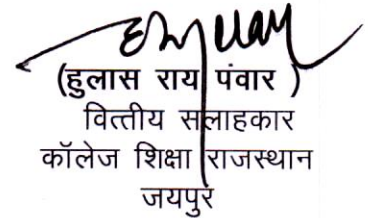 (हुलास राय पंवार )
वित्तीय सलाहकार
कॉलेज शिक्षा राजस्थान
जयपुर